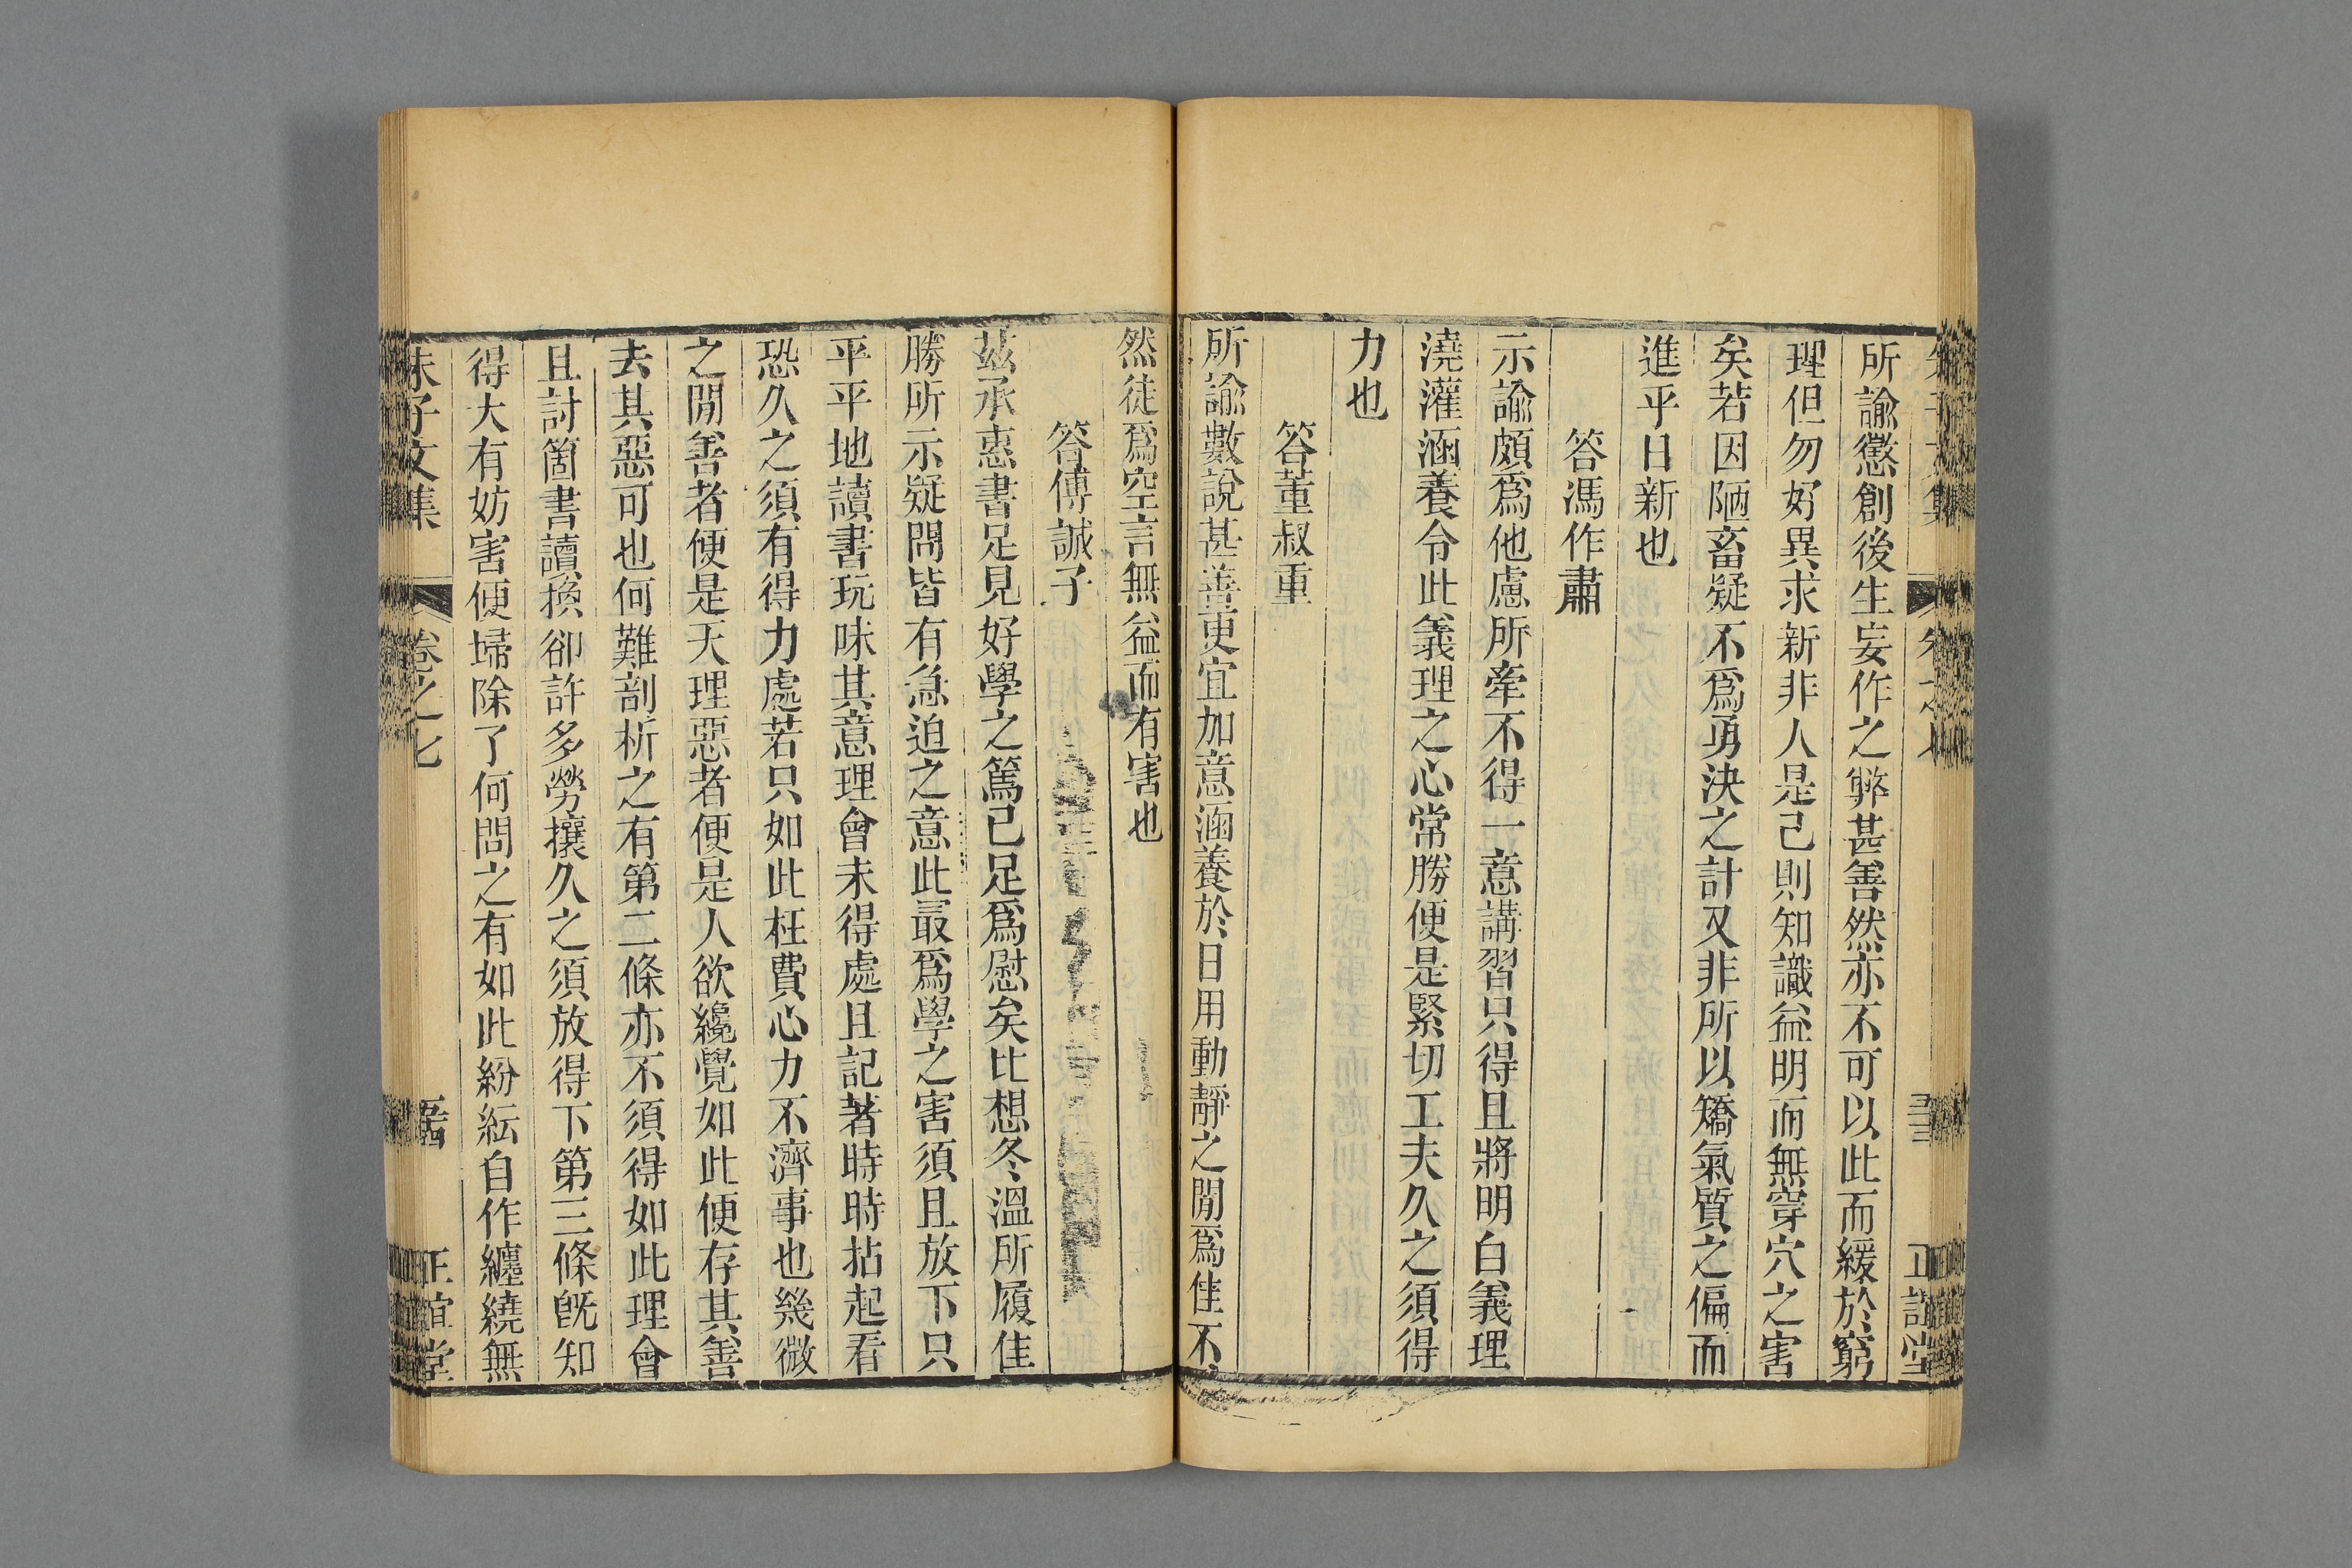 所諭懲創後生妄作之弊甚善然亦不可以此而緩於窮
理但勿好異求新非人是己則知識益明而無穿穴之害
矣若因陋畜疑不爲勇決之計又非所以矯氣質之偏而
進乎日新也
答馮作肅
示諭頗爲他慮所牽不得一意講習只得且將明白義理
澆灌涵養令此義理之心常勝便是緊切工夫久之須得
力也
答董叔重
所諭數說甚善更宜加意涵養於日用動靜之閒爲佳不
然徒爲空言無益而有害也
答傅誠子
茲承惠書足見好學之篤已足爲慰矣比想冬溫所履佳
勝所示疑問皆有急迫之意此最爲學之害須且放下只
平平地讀書玩味其意理會未得處且記著時時拈起看
恐久之須有得力處若只如此枉費心力不濟事也幾微
之閒善者便是天理惡者便是人欲纔覺如此便存其善
去其惡可也何難剖析之有第二條亦不須得如此理會
且討箇書讀換卻許多勞攘久之須放得下第三條旣知
得大有妨害便埽除了何問之有如此紛紜自作纏繞無
朱子文集 卷之七 正誼堂